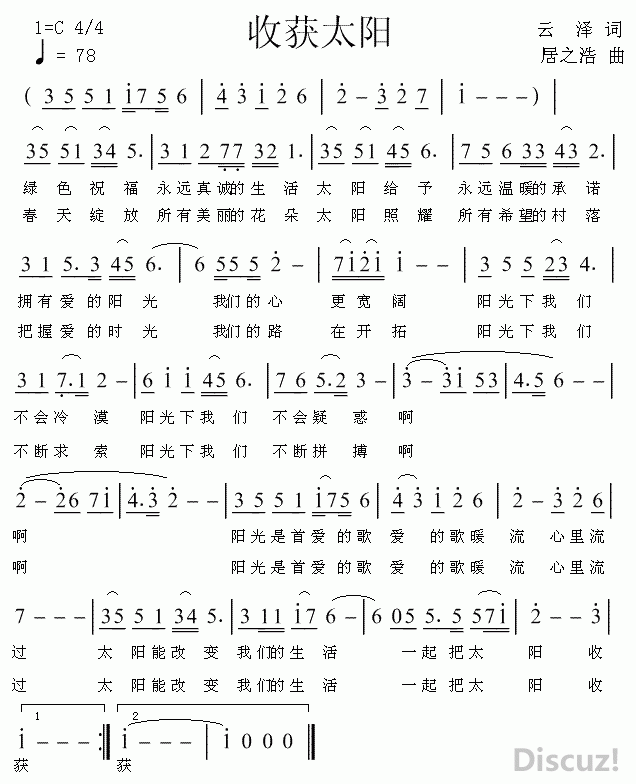 1=C 4/4 收获太阳 云泽 词
♩= 78 居之浩 曲
( 3 5 5 1 i̇ 7 5 6 | 4̇ 3̇ i̇ 2̇ 6 | 2̇ - 3̇ 2̇ 7 | i̇ - - - )
35 51 34 5. | 3 1 2 7̣7̣ 32 1. | 35 51 45 6. | 7 5 6 33 43 2. |
绿 色 祝 福 永远真诚的生 活 太 阳 给 予 永远温暖的承 诺
春 天 绽 放 所有美丽的花 朵 太 阳 照 耀 所有希望的村 落
3 1 5. 3 45 6. | 6 55 5 2̇ - | 7i̇2̇i̇ i̇ - - | 3 5 5 23 4. |
拥有爱的阳 光 我们的心 更宽 阔 阳光下我 们
把握爱的时 光 我们的路 在开 拓 阳光下我 们
3 1 7̣.1 2 - | 6 i̇ i̇ 45 6. | 7 6 5.2 3 - | 3̇ - 3̇i̇ 53 | 4.5 6 - - |
不会冷 漠 阳光下我 们 不会疑 惑 啊
不断求 索 阳光下我 们 不断拼 搏 啊
2̇ - 2̇6 7i̇ | 4̇.3̇ 2̇ - - | 3 5 5 1 i̇75 6 | 4̇ 3̇ i̇ 2̇ 6 | 2̇ - 3̇ 2̇ 6 |
啊 阳光是首爱 的歌 爱 的歌暖 流 心里流
啊 阳光是首爱 的歌 爱 的歌暖 流 心里流
7 - - - | 35 5 1 34 5. | 3 11 i̇7 6 - | 6 05 5. 5 57i̇ | 2̇ - - 3̇ |
过 太 阳能改 变 我们的生 活 一起 把太 阳 收
过 太 阳能改 变 我们的生 活 一起 把太 阳 收
1 2
i̇ - - - :‖ i̇ - - - | i̇ 0 0 0 ‖
获 获
Discuz!